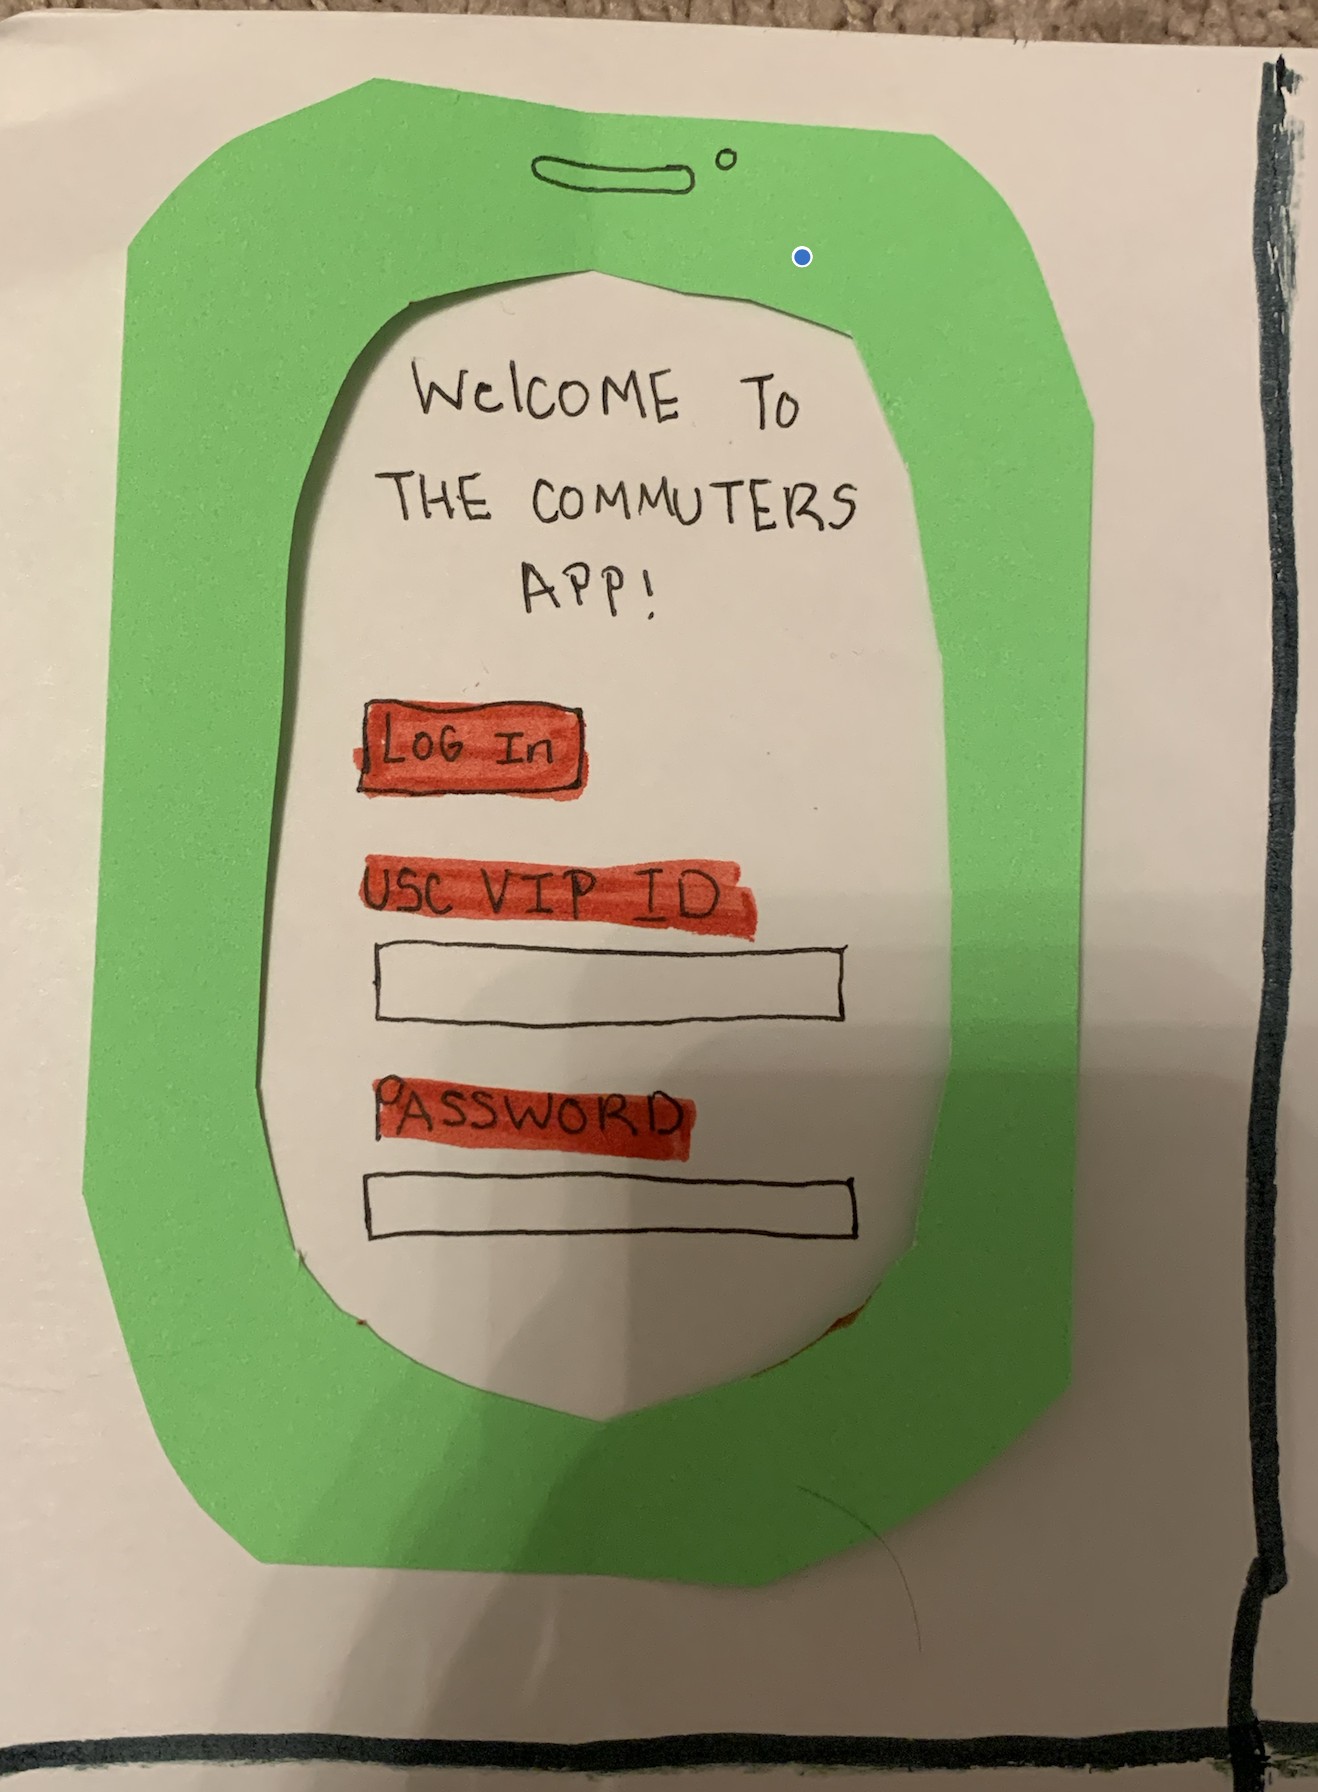 WelCOME To
THE COMMUTERS
APP!
LOG In
USC VIP ID
PASSWORD